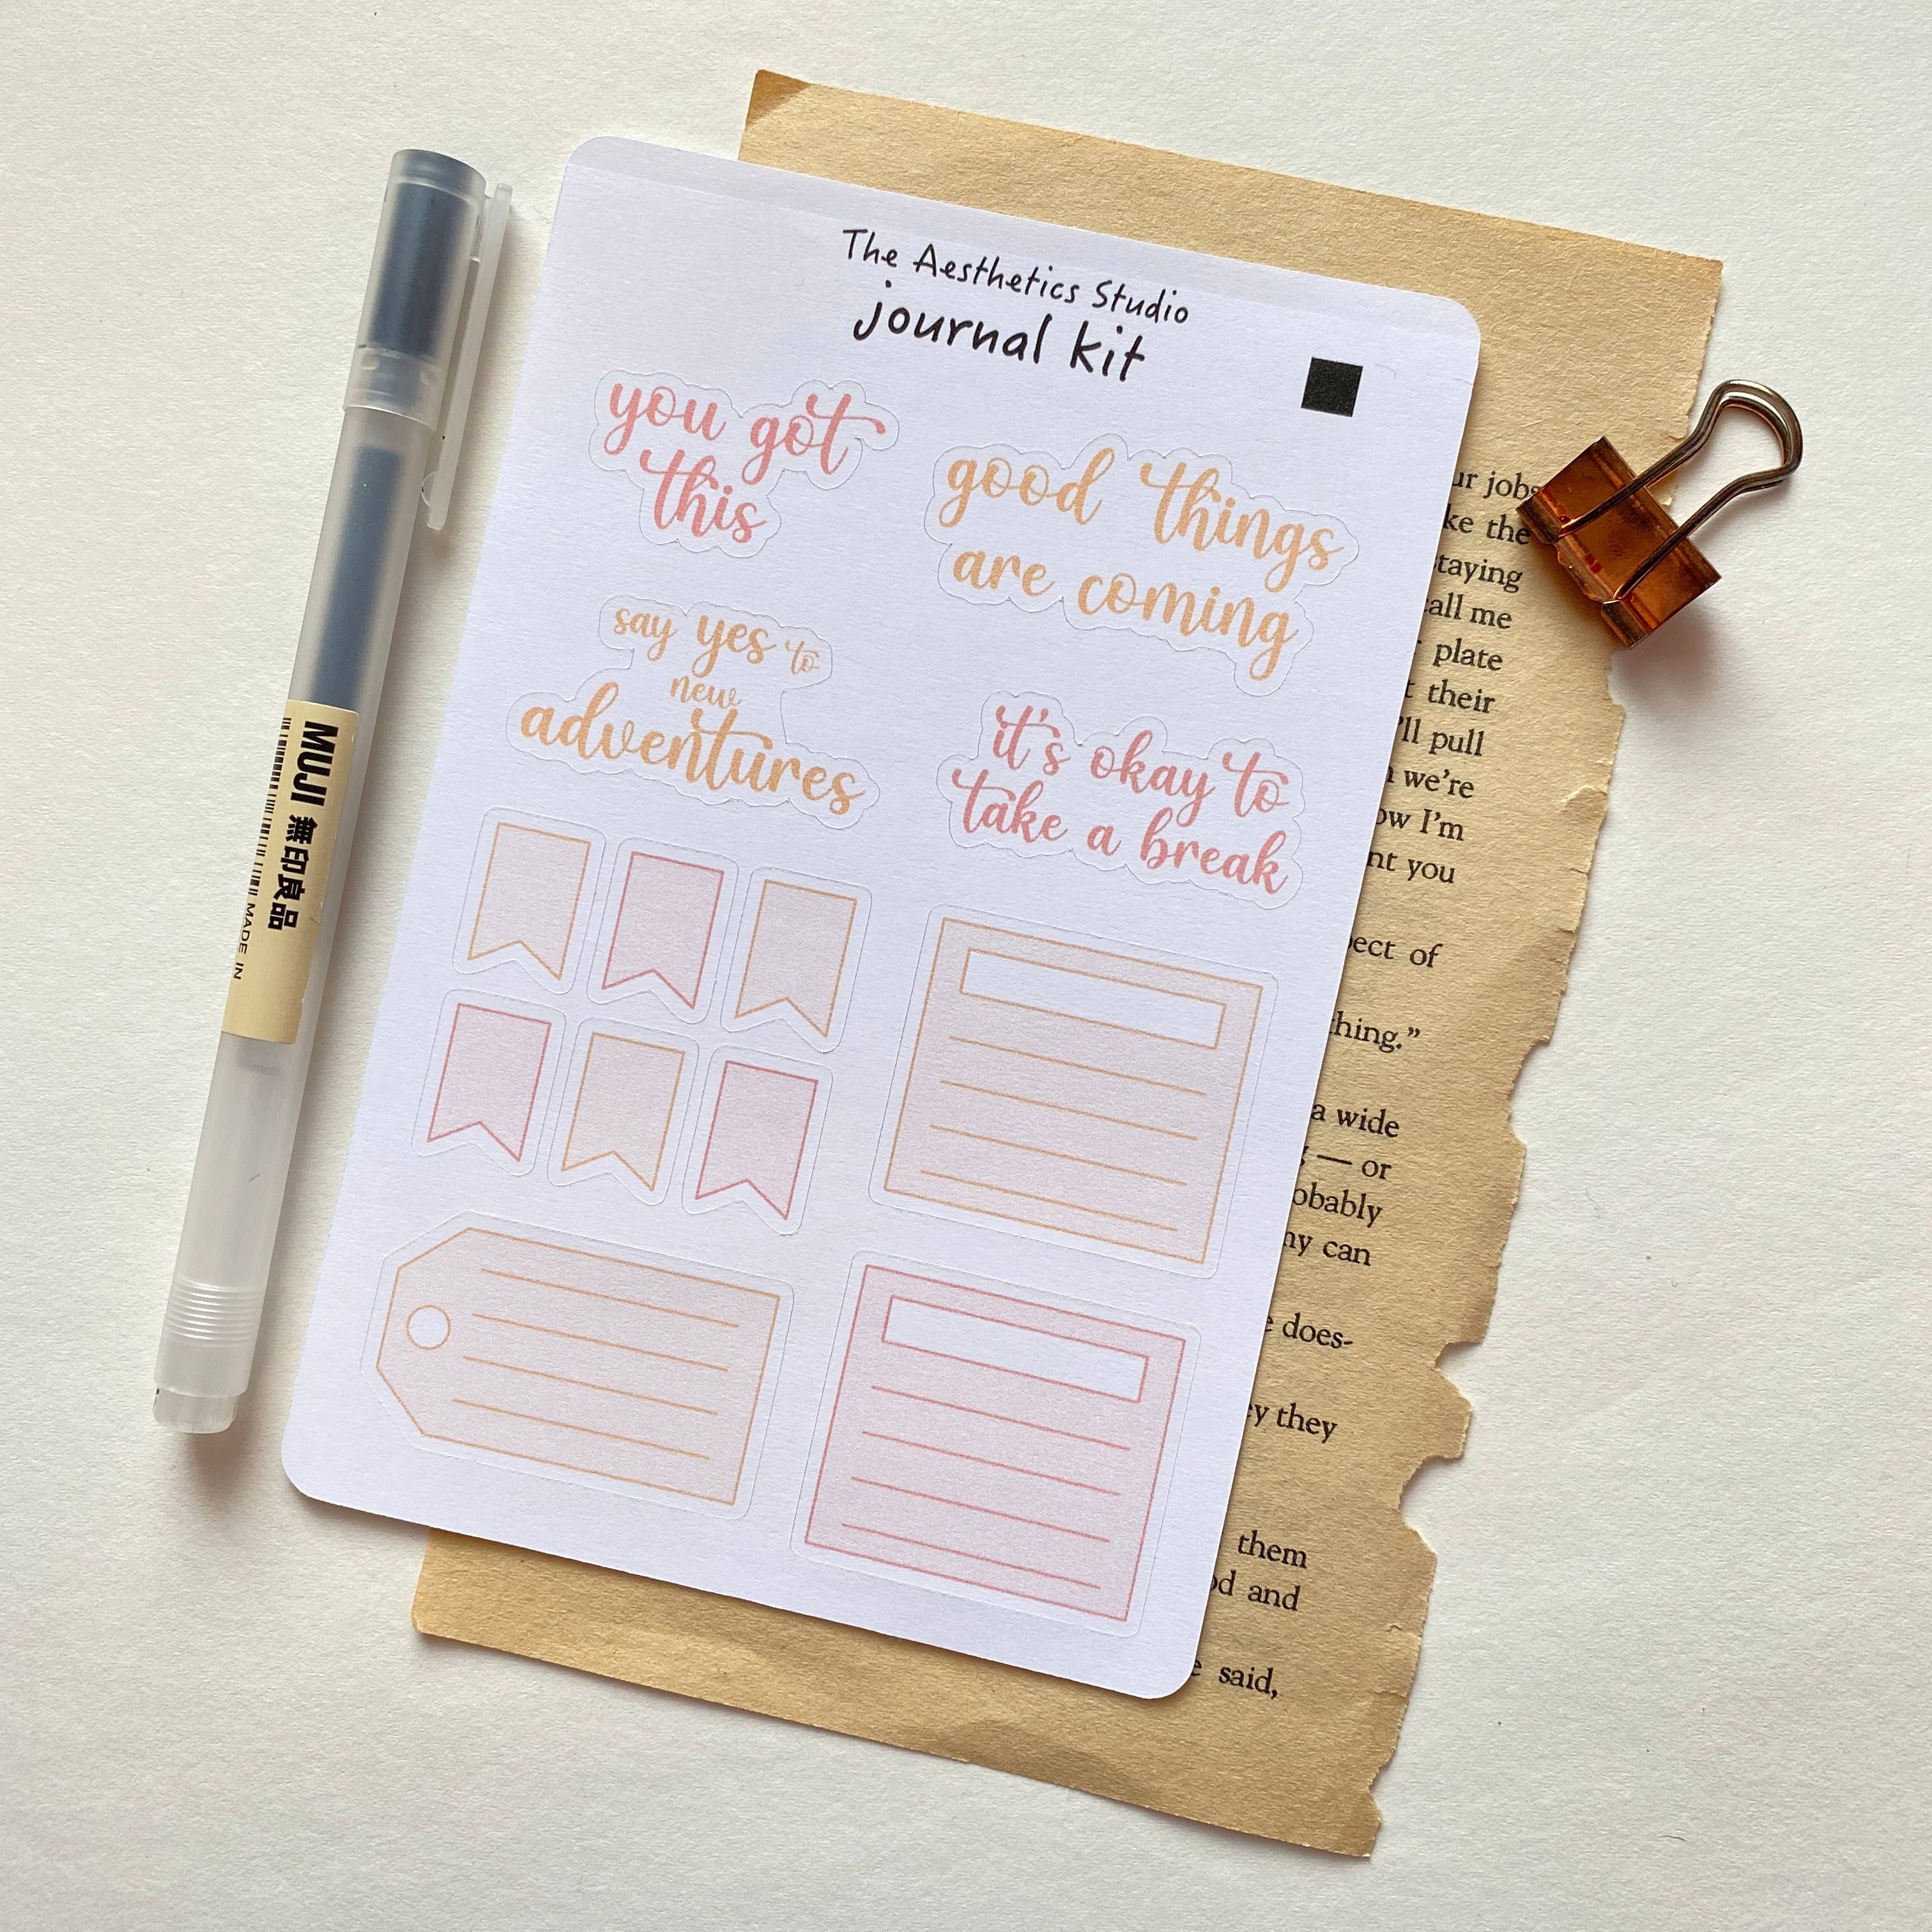 The Aesthetics Studio
journal kit
you got
this
good things
are coming
say yes to
new
adventures
it's okay to
take a break
MUJI 無印良品
MADE IN
jobs
the
me
plate
their
pull
we're
I'm
you
of
a wide
— or
can
does-
they
them
and
said,